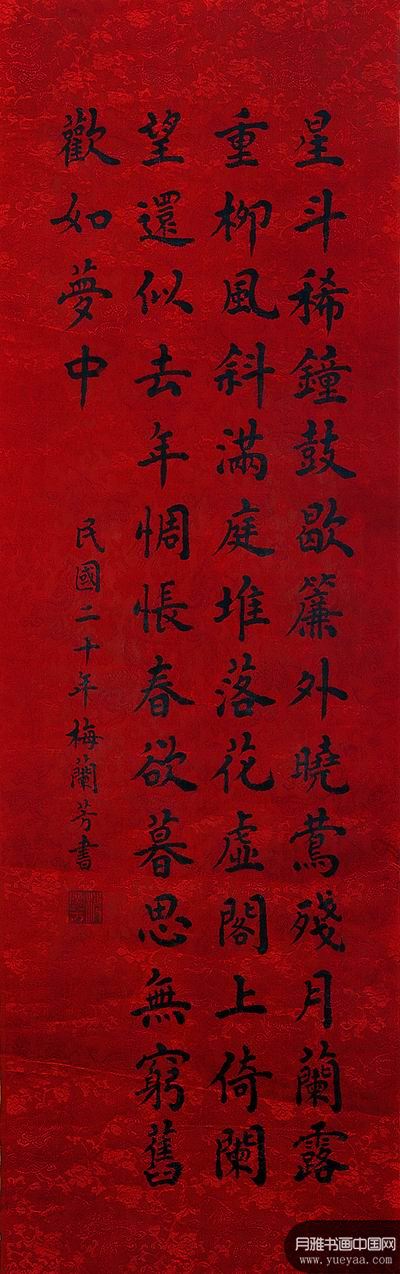 星斗稀鐘鼓歇簾外曉鶯殘月蘭露
重柳風斜滿庭堆落花虛閣上倚闌
望還似去年惆悵春欲暮思無窮舊
歡如夢中
民國二十年梅蘭芳書
月雅书画中国网
www.yueyaa.com